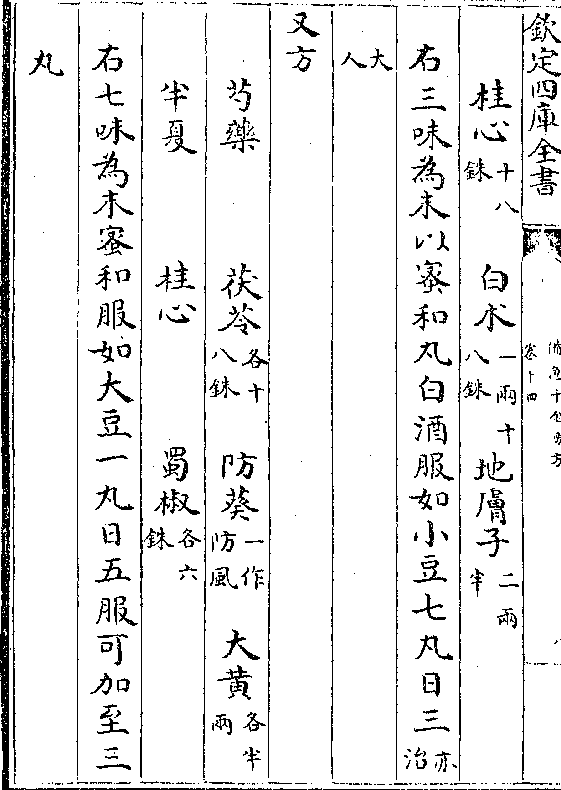 欽定四庫全書
備急千金要方
卷十四
桂心十八銖 白朮一兩十八銖 地膚子二兩半
右三味為末以蜜和丸白酒服如小豆七丸日三亦治
大人
又方
芍藥 茯苓各十八銖 防葵一作防風 大黄各半兩
半夏 桂心 蜀椒各六銖
右七味為末蜜和服如大豆一丸日五服可加至三
丸